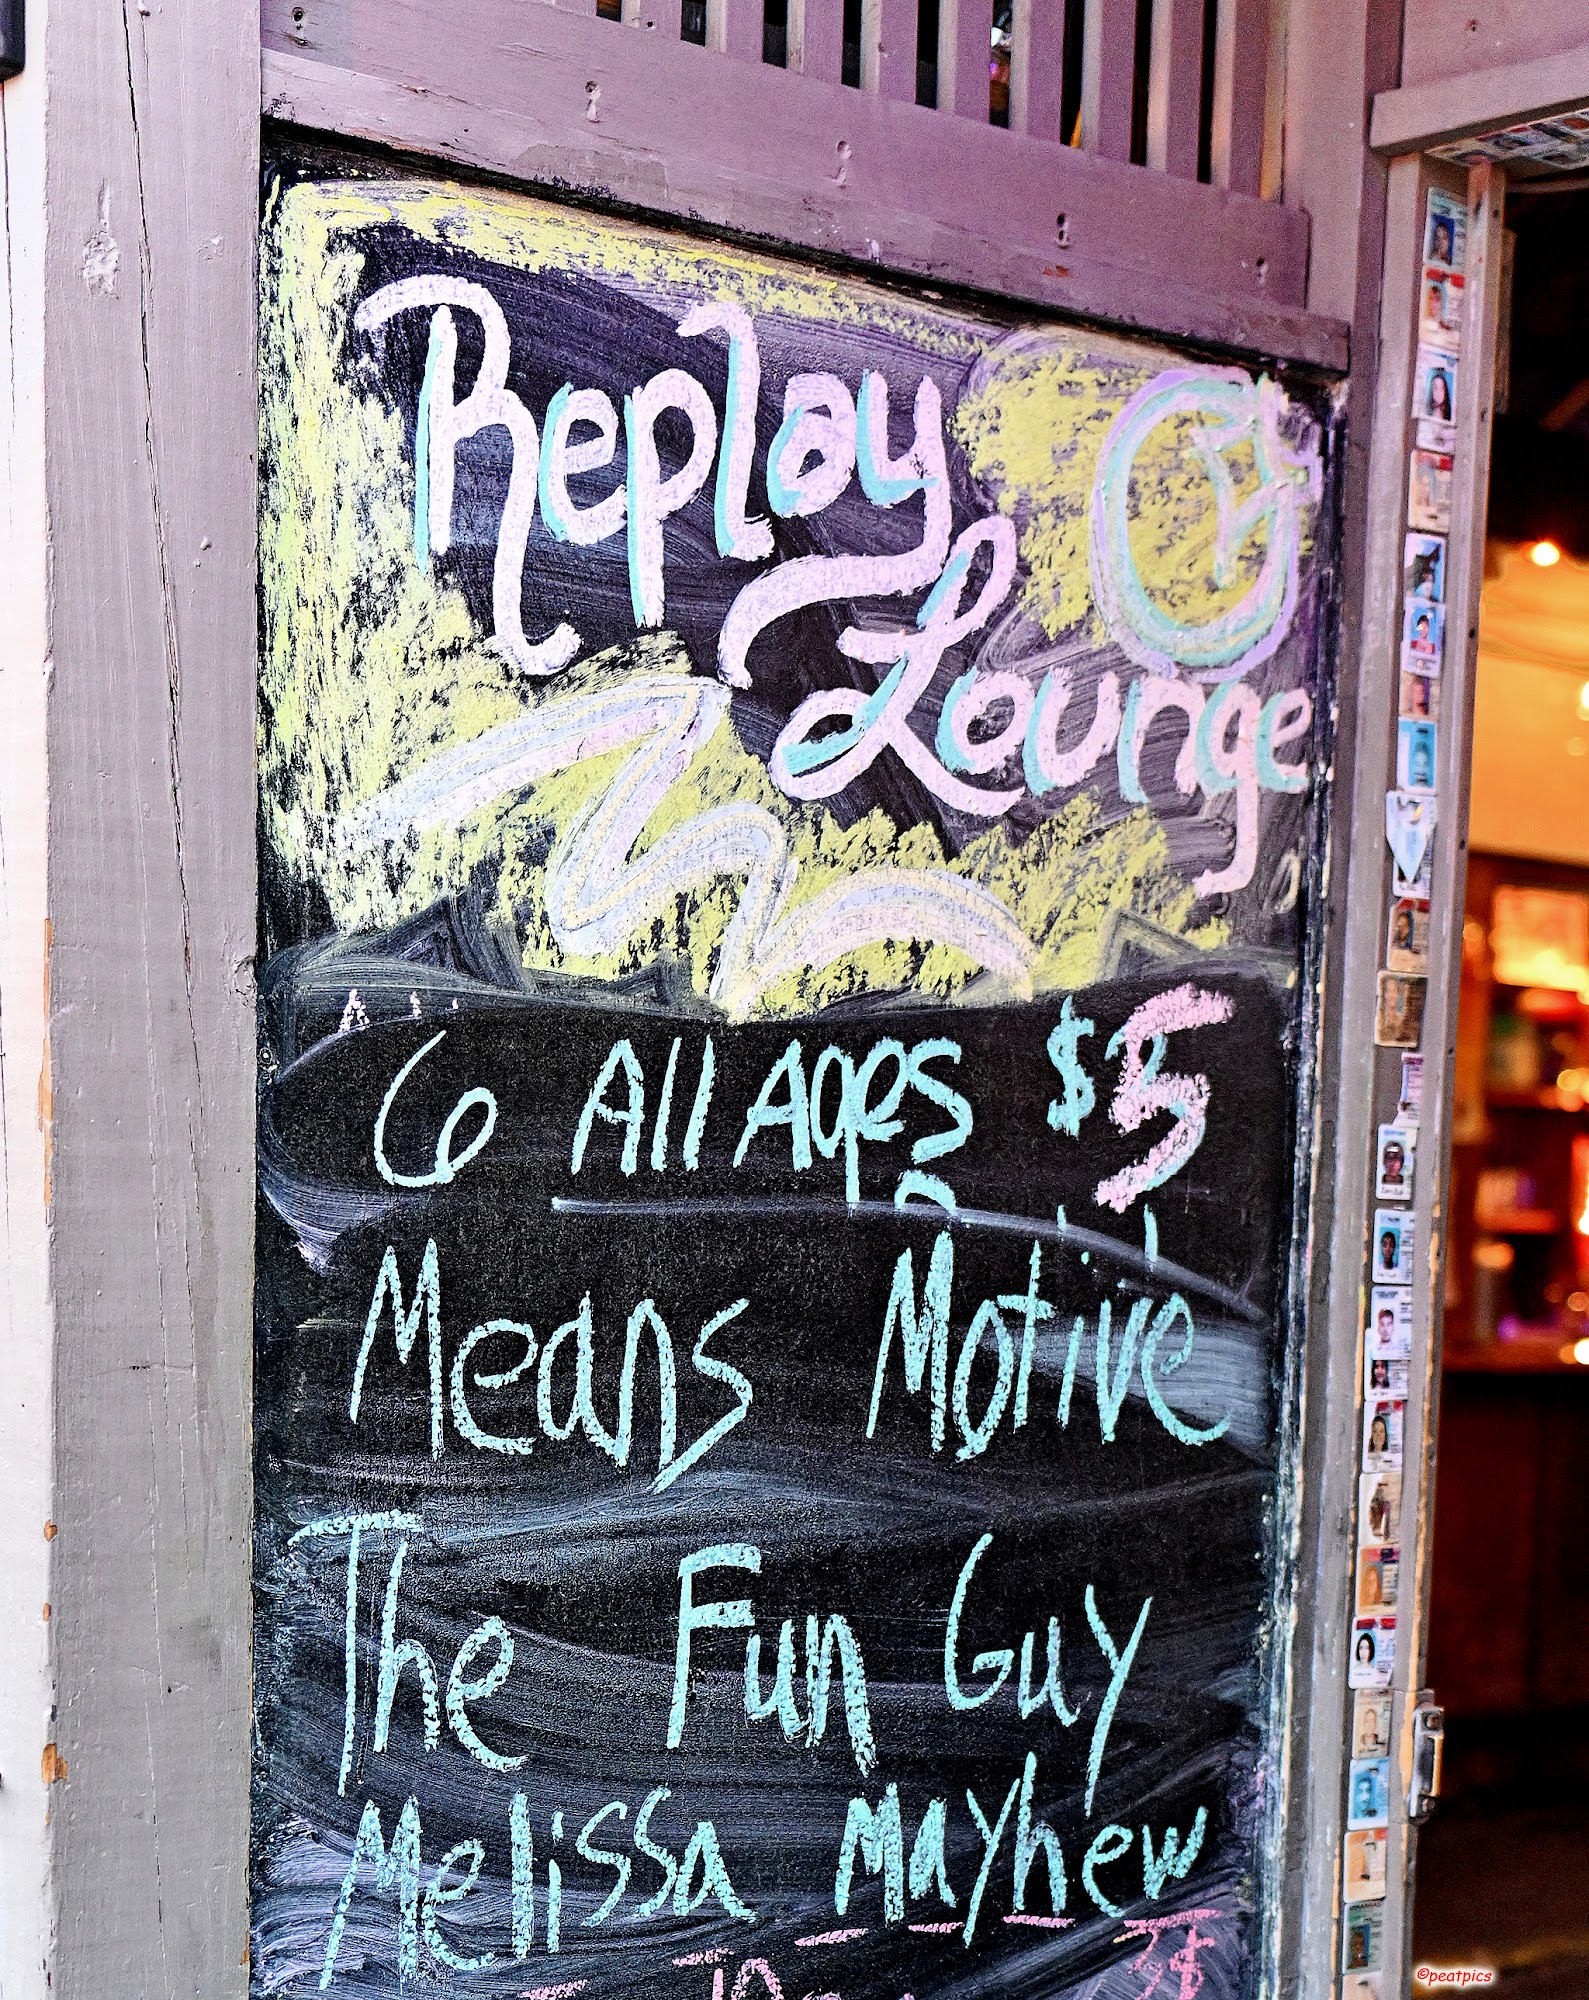 Replay
Lounge
6 All Ages $5
Means Motive
The Fun Guy
Melissa Mayhew
©peatpics